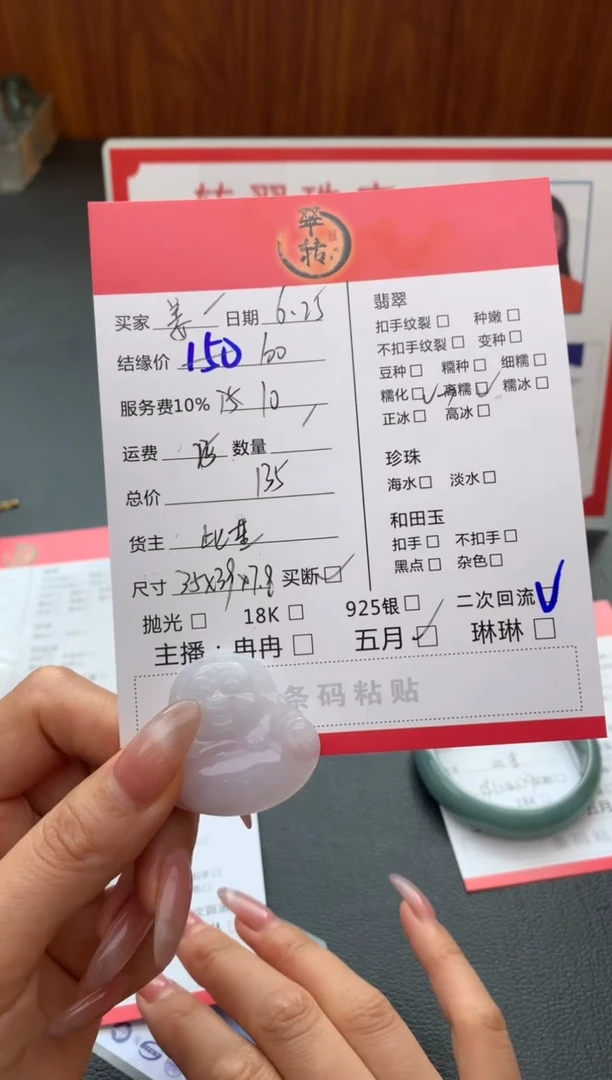 翠转
买家 姜 日期 6.25
结缘价 150 100
服务费10% 15 10
运费 数量
总价 135
货主
尺寸 35×39×7.8 买断
抛光 18K 925银 二次回流
主播：冉冉 五月 琳琳
条码粘贴
翡翠
扣手纹裂 种嫩
不扣手纹裂 变种
豆种 糯种 细糯
糯化 高糯 糯冰
正冰 高冰
珍珠
海水 淡水
和田玉
扣手 不扣手
黑点 杂色
五月